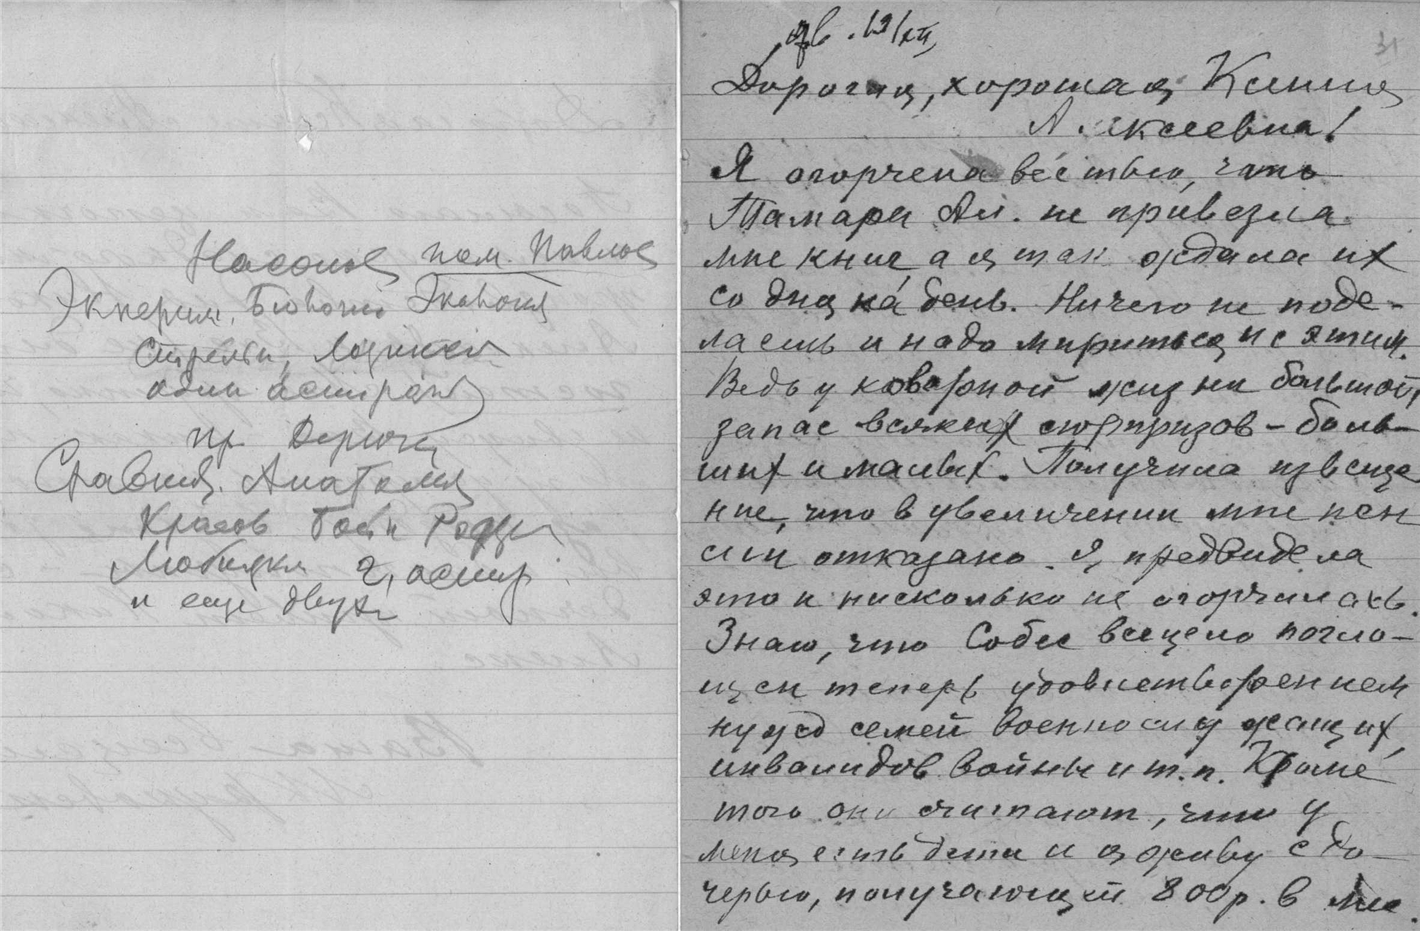 Насонов пом. Павлов
один аспирант
Сравнит. Анатомия
и еще двух
31
отв. 19/XII
Дорогая, хорошая Ксения
Алексеевна!
Я огорчена вестью, что
Тамара Ал. не привезла
мне книг, а я так ждала их
со дня на́ день. Ничего не поде-
лаешь и надо мириться и с этим.
Ведь у коварной жизни большой
запас всяких сюрпризов – боль-
ших и малых. Получила извеще
ние, что в увеличении мне пен
сии отказано. Я предвидела
это и нисколько не огорчилась.
Знаю, что Собес всецело погло-
щен теперь удовлетворением
нужд семей военнослужащих,
инвалидов войны и т.п. Кроме
того они считают, что у
меня есть дети и я живу с до-
черью, получающей 800 р. в мес.